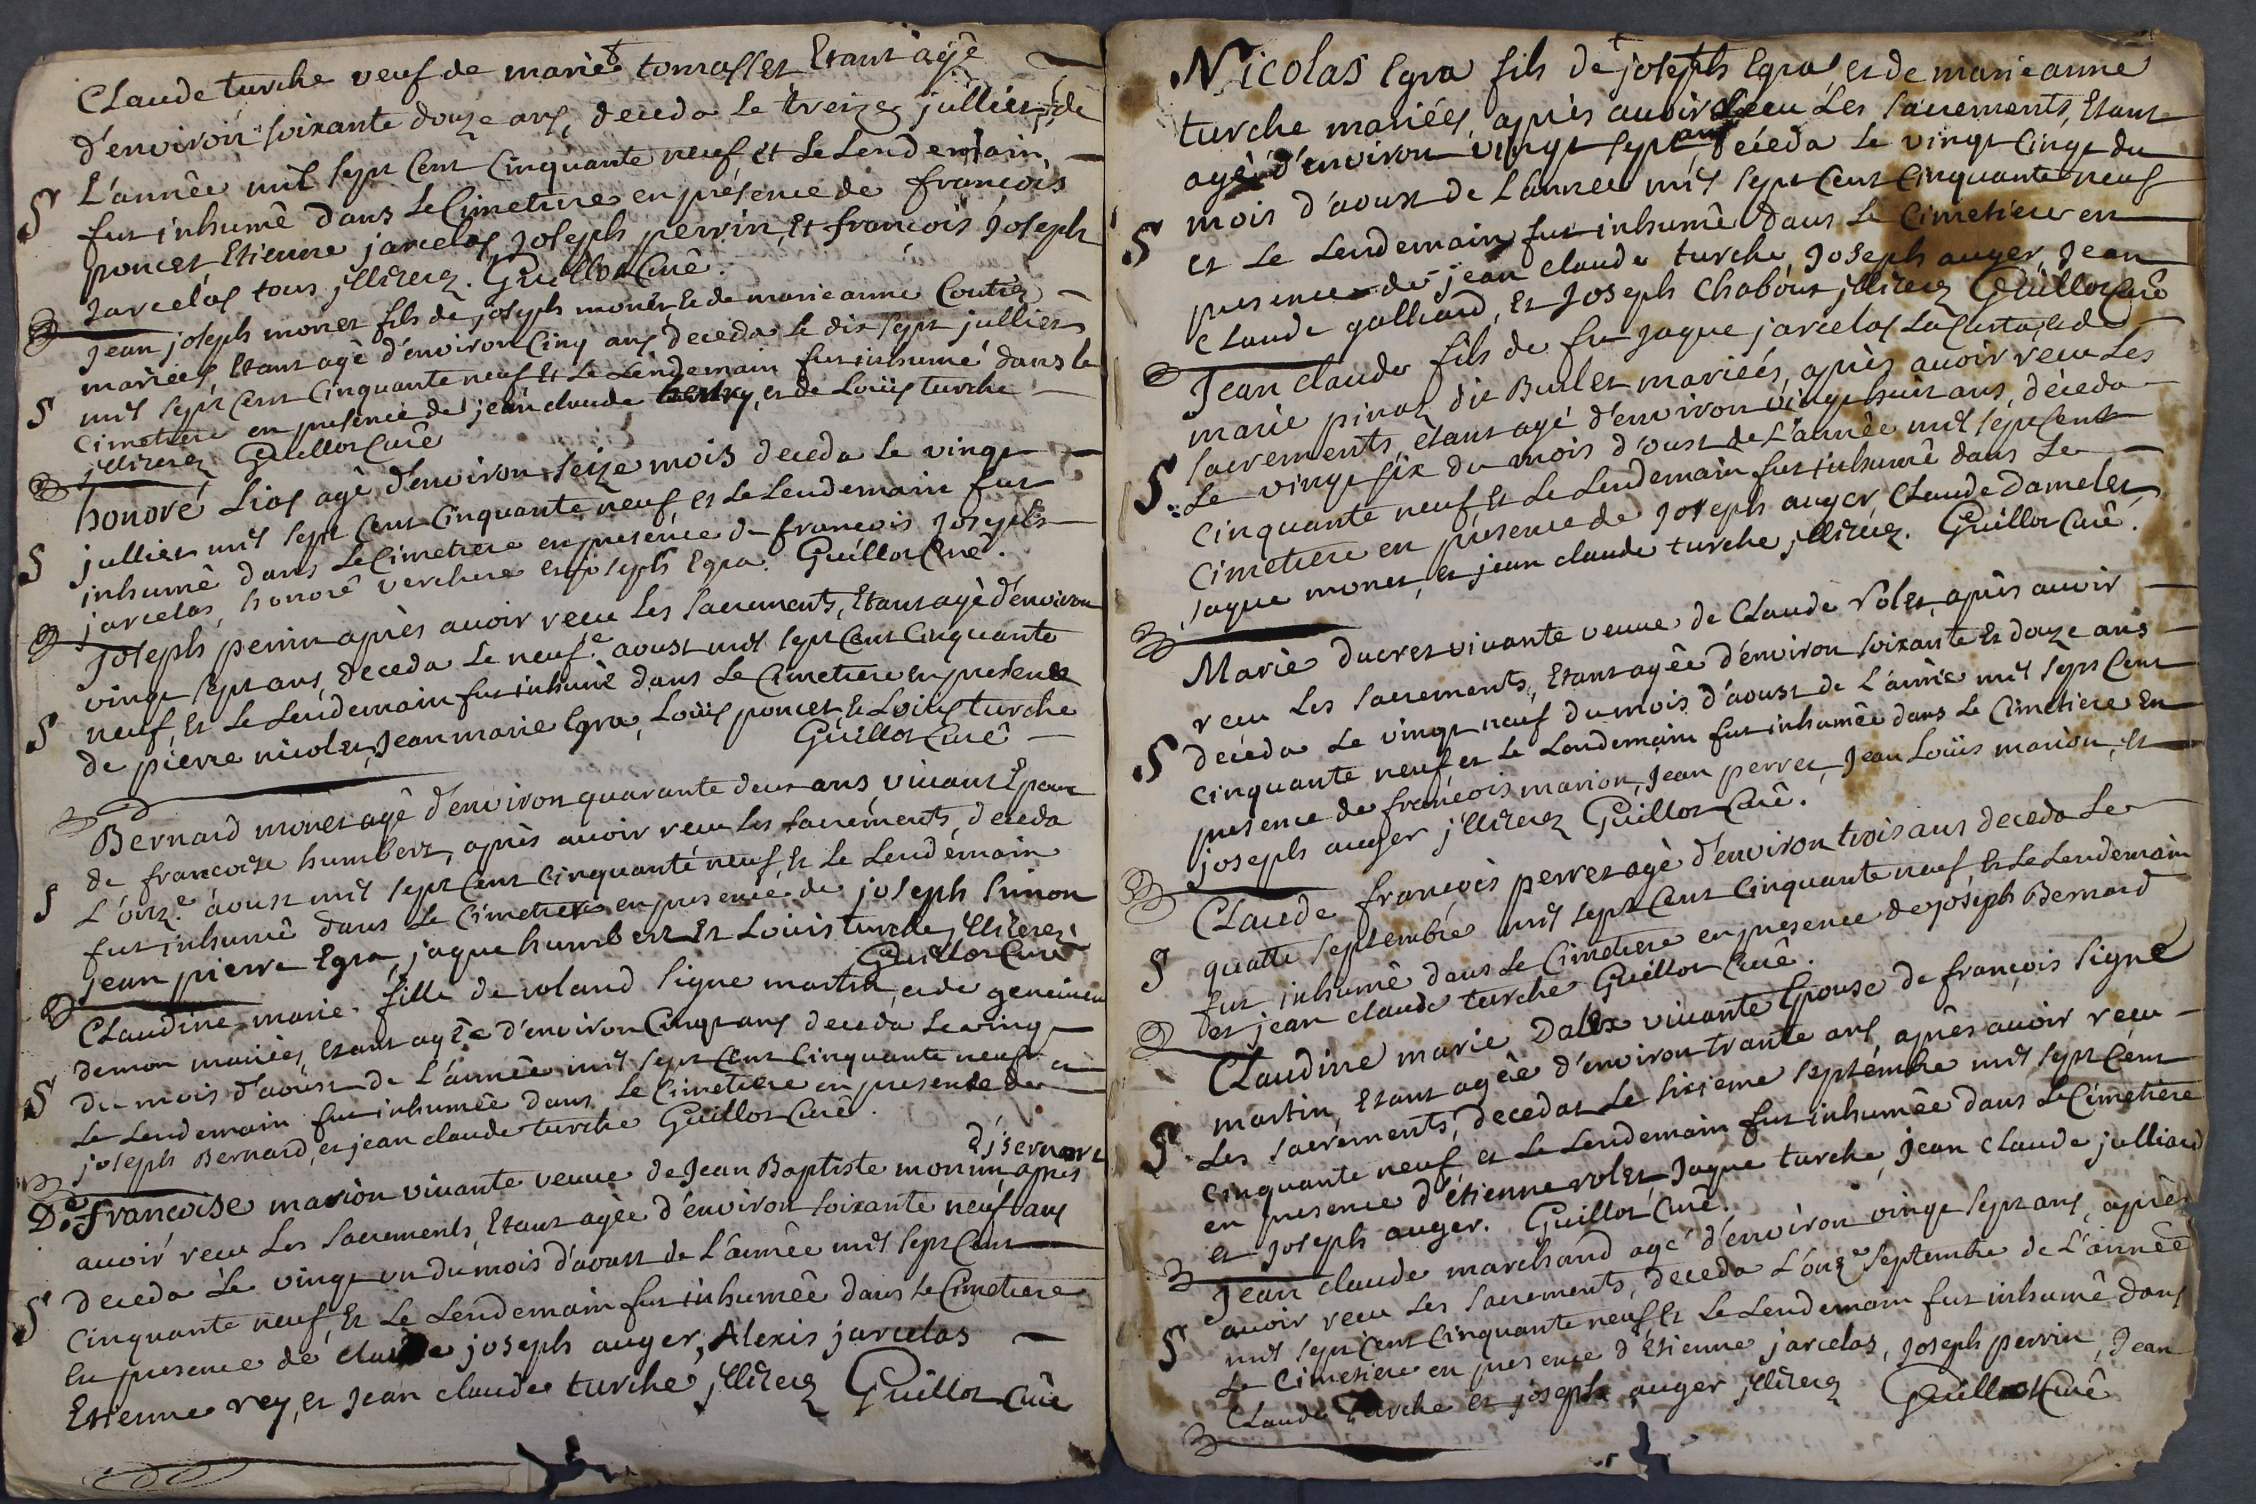 Claude turche veuf de marie tomasset Etant agê
d'environ soixante douze ans, deceda Le treize jullier, de
L'année mil sept Cent Cinquante neuf et Le Lendemain,
§ fut inhumê dans Le Cimetiere en présence de francois
poncet, Etienne jarcelas, Joseph perrin, Et francois Joseph
Jarcelas tous jlliterez. Guillot Curê.
Jean joseph monet fils de joseph monet, et de marie anne Coutiez
mariees, Etant agê d'environ Cinq ans deceda Le dix sept jullier
§ mil sept Cent Cinquante neuf, Et Le Lendemain fut inhumé dans le
Cimetiere en presence de jean claude et de Loüis turche
jlliterez Guillot Curê
honoré Lias agê d'environ Seize mois deceda Le vingt
§ jullier mil sept Cent Cinquante neuf, et Le Lendemain fut
inhumê dans Le Cimetiere en presence de francois Joseph
jarcelas, honoré verchere et joseph Egra. Guillot Curê.
Joseph perrin après auoir receu Les Sacrements, Etant agè d'environ
vingt sept ans, deceda Le neuf.e aoust mil sept Cent Cinquante
§ neuf, Et Le Lendemain fut inhumê dans Le Cimetiere en presence
de pierre nicolet, Jean marie Egra, Loüis poncet, et Loüis turche
Guillot Curê
Bernard monet agê d'environ quarante deux ans, viuant Epoux
de francoise humbert, après auoir receu Les Sacrements, deceda
§ L'onz.e aoust mil sept Cent Cinquante neuf, Et Le Lendemain
fut inhumê dans Le Cimetiere en presence de joseph Simon
Jean pierre Egra, jaque humbert Et Louis turche jlliterez
Guillot Curê
Claudine marie fille de roland Signe martin, et de
demon mariées, Etant agêe d'environ Cinq ans deceda Le vingt
§ du mois d'aoust de L'année mil sept Cent Cinquante neuf et
Le Lendemain fut inhumêe dans Le Cimetiere en presence de
joseph Bernard, et jean claude turche Guillot Curê.
D.e francoise marion viuante veuue de Jean Baptiste monun après
auoir receu Les Sacrements, Etant agèe d'environ soixante neuf ans
deceda Le vingt un du mois d'aoust de L'année mil sept Cent
§ Cinquante neuf, Et Le Lendemain fut inhumêe dans Le Cimetiere
En presence de claude joseph auger, Alexis jarcelas
Etienne rey, et Jean claude turche jlliterez Guillot Curê
Nicolas Egra fils de joseph Egra et de marie anne
turche mariées, après auoir receu Les Sacrements, Etant
agê d'environ vingt sept ans deceda Le vingt Cinq du
§ mois d'aoust de L'année mil sept Cent Cinquante neuf
et Le Lendemain fut inhumê dans Le Cimetiere en
presence de jean claude turche, Joseph auger, Jean
claude galliard, Et Joseph Chabout jlliterez Guillot Curê
Jean claude fils de fu jaque jarcelas et de
marie pinat dit Burlet mariées, après auoir receu Les
Sacrements, étant agé d'environ vingt huit ans, déceda
§ Le vingt six du mois d'oust de L'année mil sept Cent
Cinquante neuf Et Le Lendemain fut inhumê dans Le
Cimetiere en présence de Joseph auger, Claude Damelet
jaque monet, et jean claude turche jlliterez. Guillot Curê.
Marie ducret viuante veuue de Claude rolet, après auoir
receu Les Sacrements, Etant agêe d'environ soixante Et douze ans
§ deceda Le vingt neuf du mois d'aoust de L'année mil sept Cent
Cinquante neuf, et Le Lendemain fut inhumêe dans Le Cimetiere En
presence de francois marion, Jean perret, Jean Loüis marion, Et
joseph auger jlliterez Guillot Curê.
Claude françois perret agè d'environ trois ans deceda Le
§ quatte Septembre mil sept Cent Cinquante neuf, Et Le Lendemain
fut inhumê dans Le Cimetiere en presence de joseph Bernard
et jean claude turche Guillot Curê.
Claudine marie Dalex viuante Epouse de françois Signe
martin, Etant agêe d'environ trante ans, après auoir receu
§ Les Sacrements, decedat Le Sixieme Septembre mil sept Cent
Cinquante neuf et Le Lendemain fut inhumêe dans Le Cimetiere
en presence d'étienne rolet, Jaque turche, Jean claude julliard
et joseph auger. Guillot Curê.
Jean claude marchand agé d'environ vingt sept ans, après
auoir receu Les Sacrements, deceda L'onz.e Septembre de L'année
§ mil sept Cent Cinquante neuf Et Le Lendemain fut inhumê dans
Le Cimetiere en presence d'Etienne jarcelas, Joseph perrin, Jean
Claude turche et joseph auger jlliterez Guillot Curê